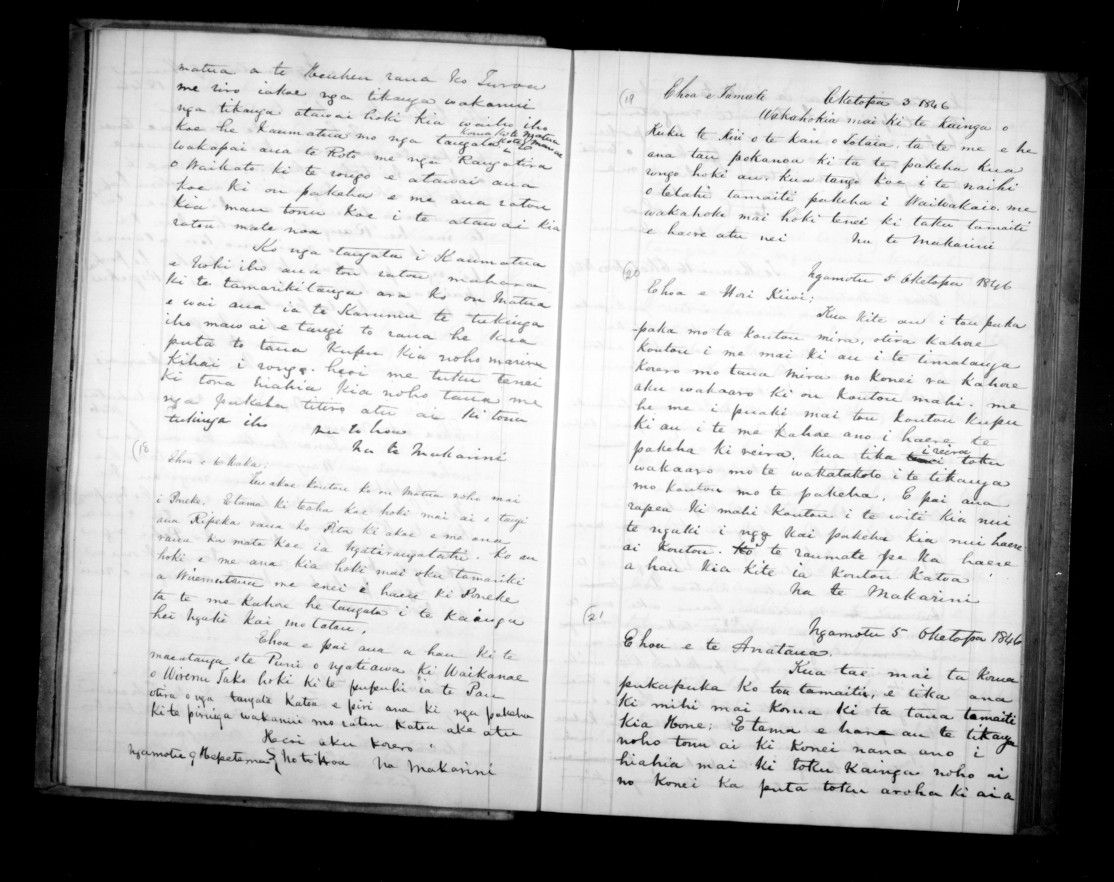 matua a te Heuheu raua ko Turoa
me riro iakoe nga tikanga wakanui
nga tikanga atawai hoki kia waiho iho
koe he Kaumatua mo nga tangata
wakapai ana te Roto me nga Rangatira
o Waikato ki te rongo e atawai ana
koe ki ou pakeha e me ana ratou
kia mau tonu koe i te atawai kia
ratou mate noa
Ko nga tangata i Kaumatua
e hoki iho ana tou ratou mahara
ki te tamarikitanga ara ko ou Matua
e wai ana ia te Karumu te tukinga
iho mawai e tangi to raua he kua
puta to taua kupu kia noho marire
kihai i rongo. heoi me tuku tenei
ki tona hiahia kia noho taua me
nga pukeha titiro atu ai ki tonu
tukinga iho
na to hoa
Na te Makarini
Ehoa e te Waka;
Tenakoe koutou ko ou Matua noho mai
i Poneke. Etama ki taha koe hoki mai ai e tangi
ana Ripeka raua ko Pita ki akoe e me ana
raua ka mate koe ia Ngatirangatahi. ko au
hoki e me ana kia hoki mai oku tamariki
a Wiremutanu me enei e haere ki Poneke
ta te me kahore he tangata i te kainga
hei ngaki kai mo tatou.
Ehoa e pai ana a hau ki te
maeatanga o te Puni o ngatiawa ki Waikanae
o Wiremu Tako hoki ki te pupuhi ia te Pau
otira o nga tangata katoa e piri ana ki nga pakeha
ki te piringa wakanui mo ratou katoa ake atu
Heoi aku korero
Ngamotu 9 Hepetema Na to Hoa Na Makarini
(18 Ehoa e Tamate Oketopa 3 1846
Wakahokia mai ki te kainga o
Kuku te Kui o te kau o Lotaia, ta te me e he
ana tau pokanoa ki ta te pakeha kua
rongo hoki au. kua tango koe i te naihi
o tetahi tamaiti pakeha i Waiwakaio. me
wakahoki mai hoki tenei ki taku tamaiti
e haere atu nei Na te Makarini
(20 Ngamotu 5 Oketopa 1846
Ehoa e Hori Kiwi;
Kua kite au i tou puka
-puka mo ta koutou mira, otira kahore
koutou i me mai ki au i te timatanga
korero mo taua mira no konei ra kahore
aku wakaaro ki ou koutou mahi. me
he me i puaki mai tou koutou kupu
ki au i te me kahore ano i haere te
pakeha ki reira, kua tika ireira toku
wakaaro mo te wakatakoto i te tikanga
mo koutou mo te pakeha. E pai ana
rapea ki mahi koutou i te witi kia nui
te ngaki i nga kai pakeha kia nui haere
ai koutou. Ko te raumate pe ka haere
a hau kia kite ia koutou katoa
Na te Makarini
(21 Ngamotu 5 Oketopa 1846
Ehoa e te Anatana.
Kua tae mai ta korua
pukapuka ko tou tamaiti, e tika ana
ki mihi mai korua ki ta taua tamaiti
kia Hone; Etama e hara au te tikanga
noho tonu ai ki konei nana ano i
hiahia mai ki toku kainga noho ai
no konei ka puta toku aroha ki aia